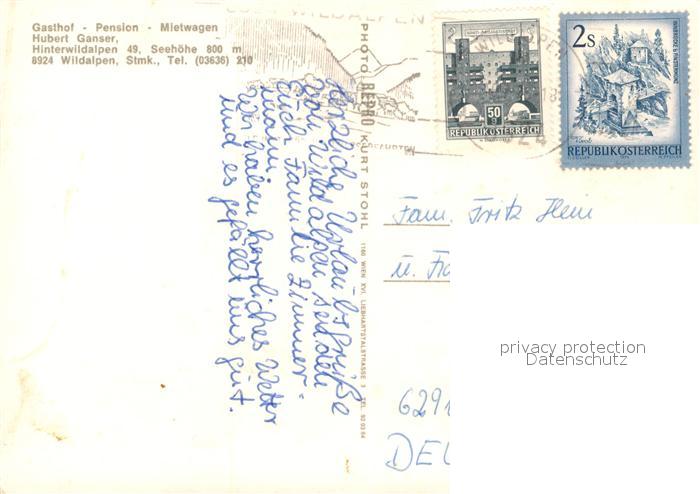 Gasthof - Pension - Mietwagen
Hubert Ganser,
Hinterwildalpen 49, Seehöhe 800 m
8924 Wildalpen, Stmk., Tel. (03636) 210
WILDALPEN
PHOTO REPRO KURT STOHL 1160 WIEN XVI, LIEBHARTSTALSTRASSE 3 TEL. 92 03 64
50 g
REPUBLIK ÖSTERREICH
2s
REPUBLIK ÖSTERREICH
Herzliche Urlaubsgrüße
aus Wildalpen senden
euch Familie Zimmer-
mann
Wir haben herrliches Wetter
und es gefällt uns gut.
Fam. Fritz Hein
u. Fr
privacy protection
Datenschutz
629
DEU